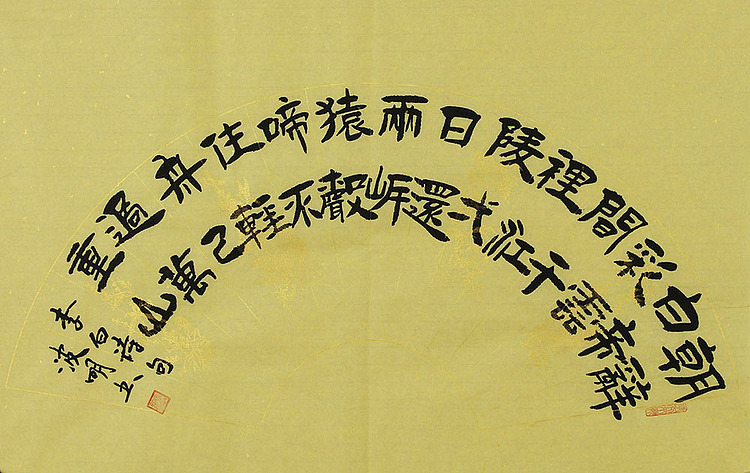 朝辭
白帝
彩雲
間千
裡江
陵弌
日還
兩岸
猿聲
啼不
住輕
舟已
過萬
重山
李白诗句
波明书